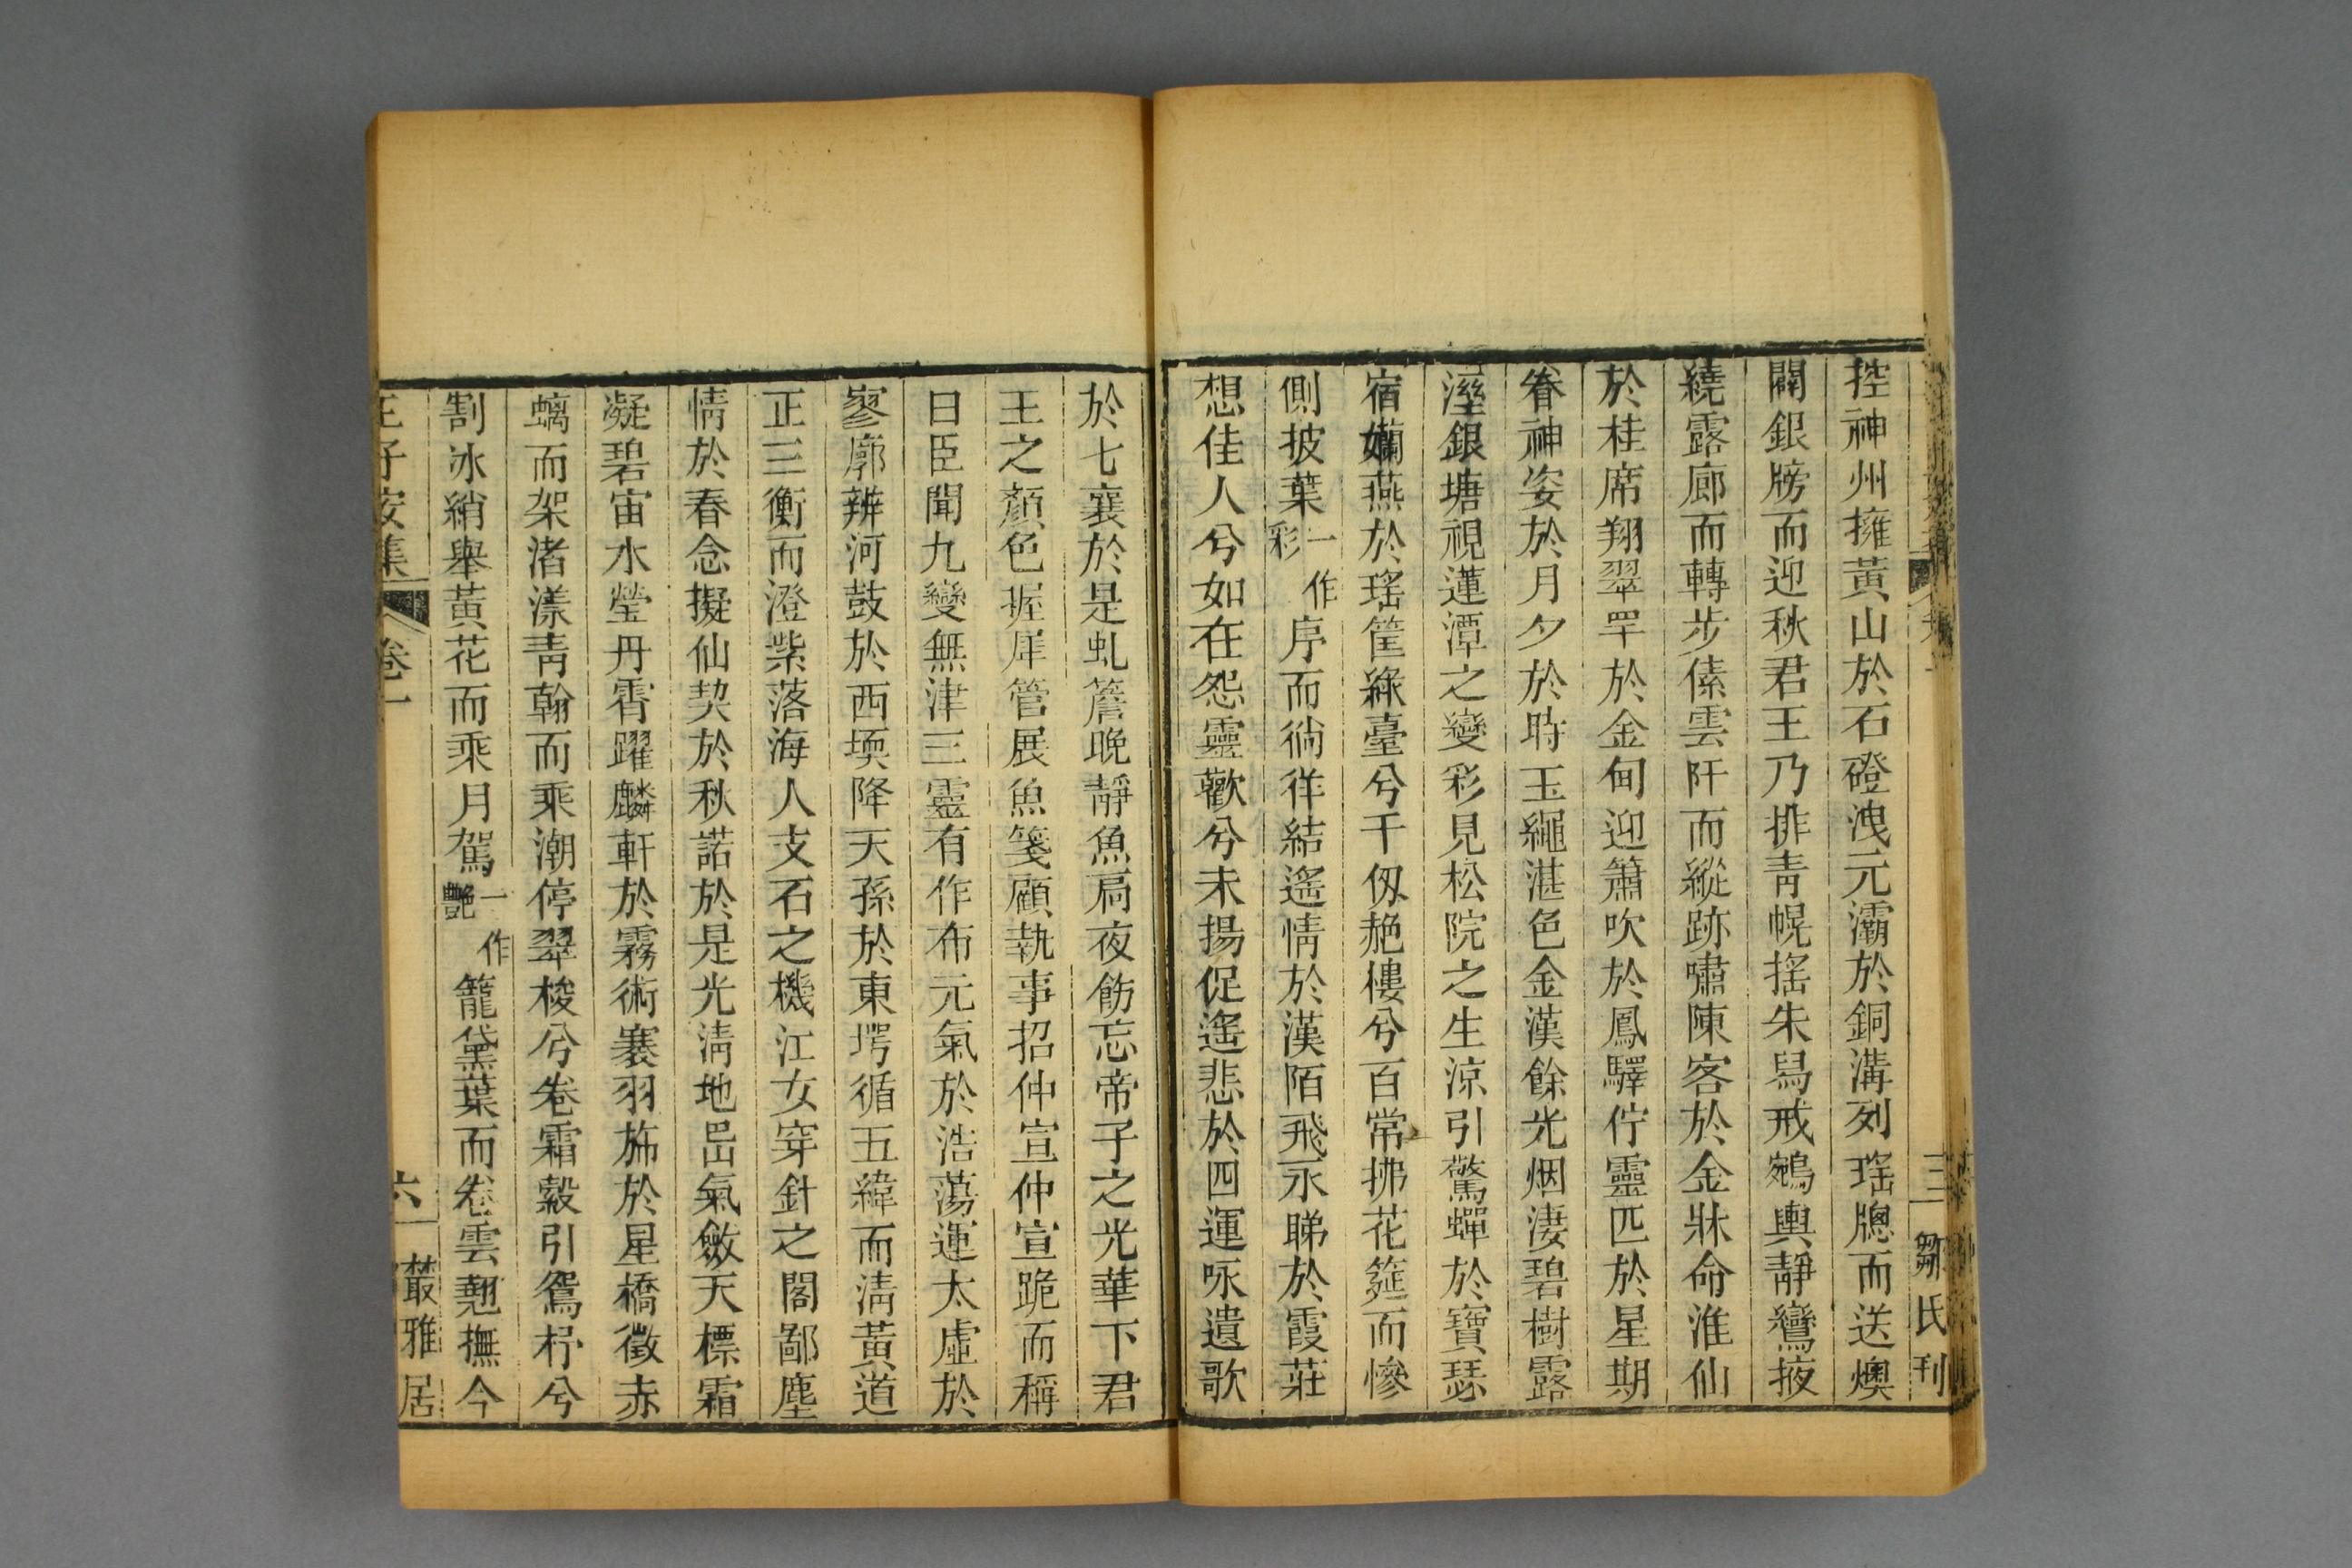 控神州擁黃山於石磴洩元灞於銅溝列瑤牕而送燠
闢銀牓而迎秋君王乃排青幌搖朱舄戒鵷輿靜鸞掖
繞露廊而轉步傃雲阡而縱跡嘯陳客於金牀命淮仙
於桂席翔翠罕於金甸迎簫吹於鳳驛佇靈匹於星期
眷神姿於月夕於時玉繩湛色金漢餘光烟淒碧樹露
溼銀塘視蓮潭之變彩見松院之生涼引驚蟬於寶瑟
宿嬾燕於瑤筐綠臺兮千仭赩樓兮百常拂花筵而慘
側披葉一作彩序而徜徉結遙情於漢陌飛永睇於霞莊
想佳人兮如在怨靈歡兮未揚促遙悲於四運咏遺歌
三
鄒氏刊
於七襄於是虬簷晚靜魚扃夜飭忘帝子之光華下君
王之顏色握犀管展魚箋顧執事招仲宣仲宣跪而稱
曰臣聞九變無津三靈有作布元氣於浩蕩運太虛於
寥廓辨河鼓於西壖降天孫於東堮循五緯而清黃道
正三衡而澄紫落海人支石之機江女穿針之閣鄙塵
情於春念擬仙契於秋諾於是光清地岊氣斂天標霜
凝碧宙水瑩丹霄躍麟軒於霧術褰羽旆於星橋徵赤
螭而架渚漾青翰而乘潮停翠梭兮卷霜縠引鴛杼兮
割冰綃舉黃花而乘月駕一作艷籠黛葉而卷雲翹撫今
王子安集
卷一
六
叢雅居